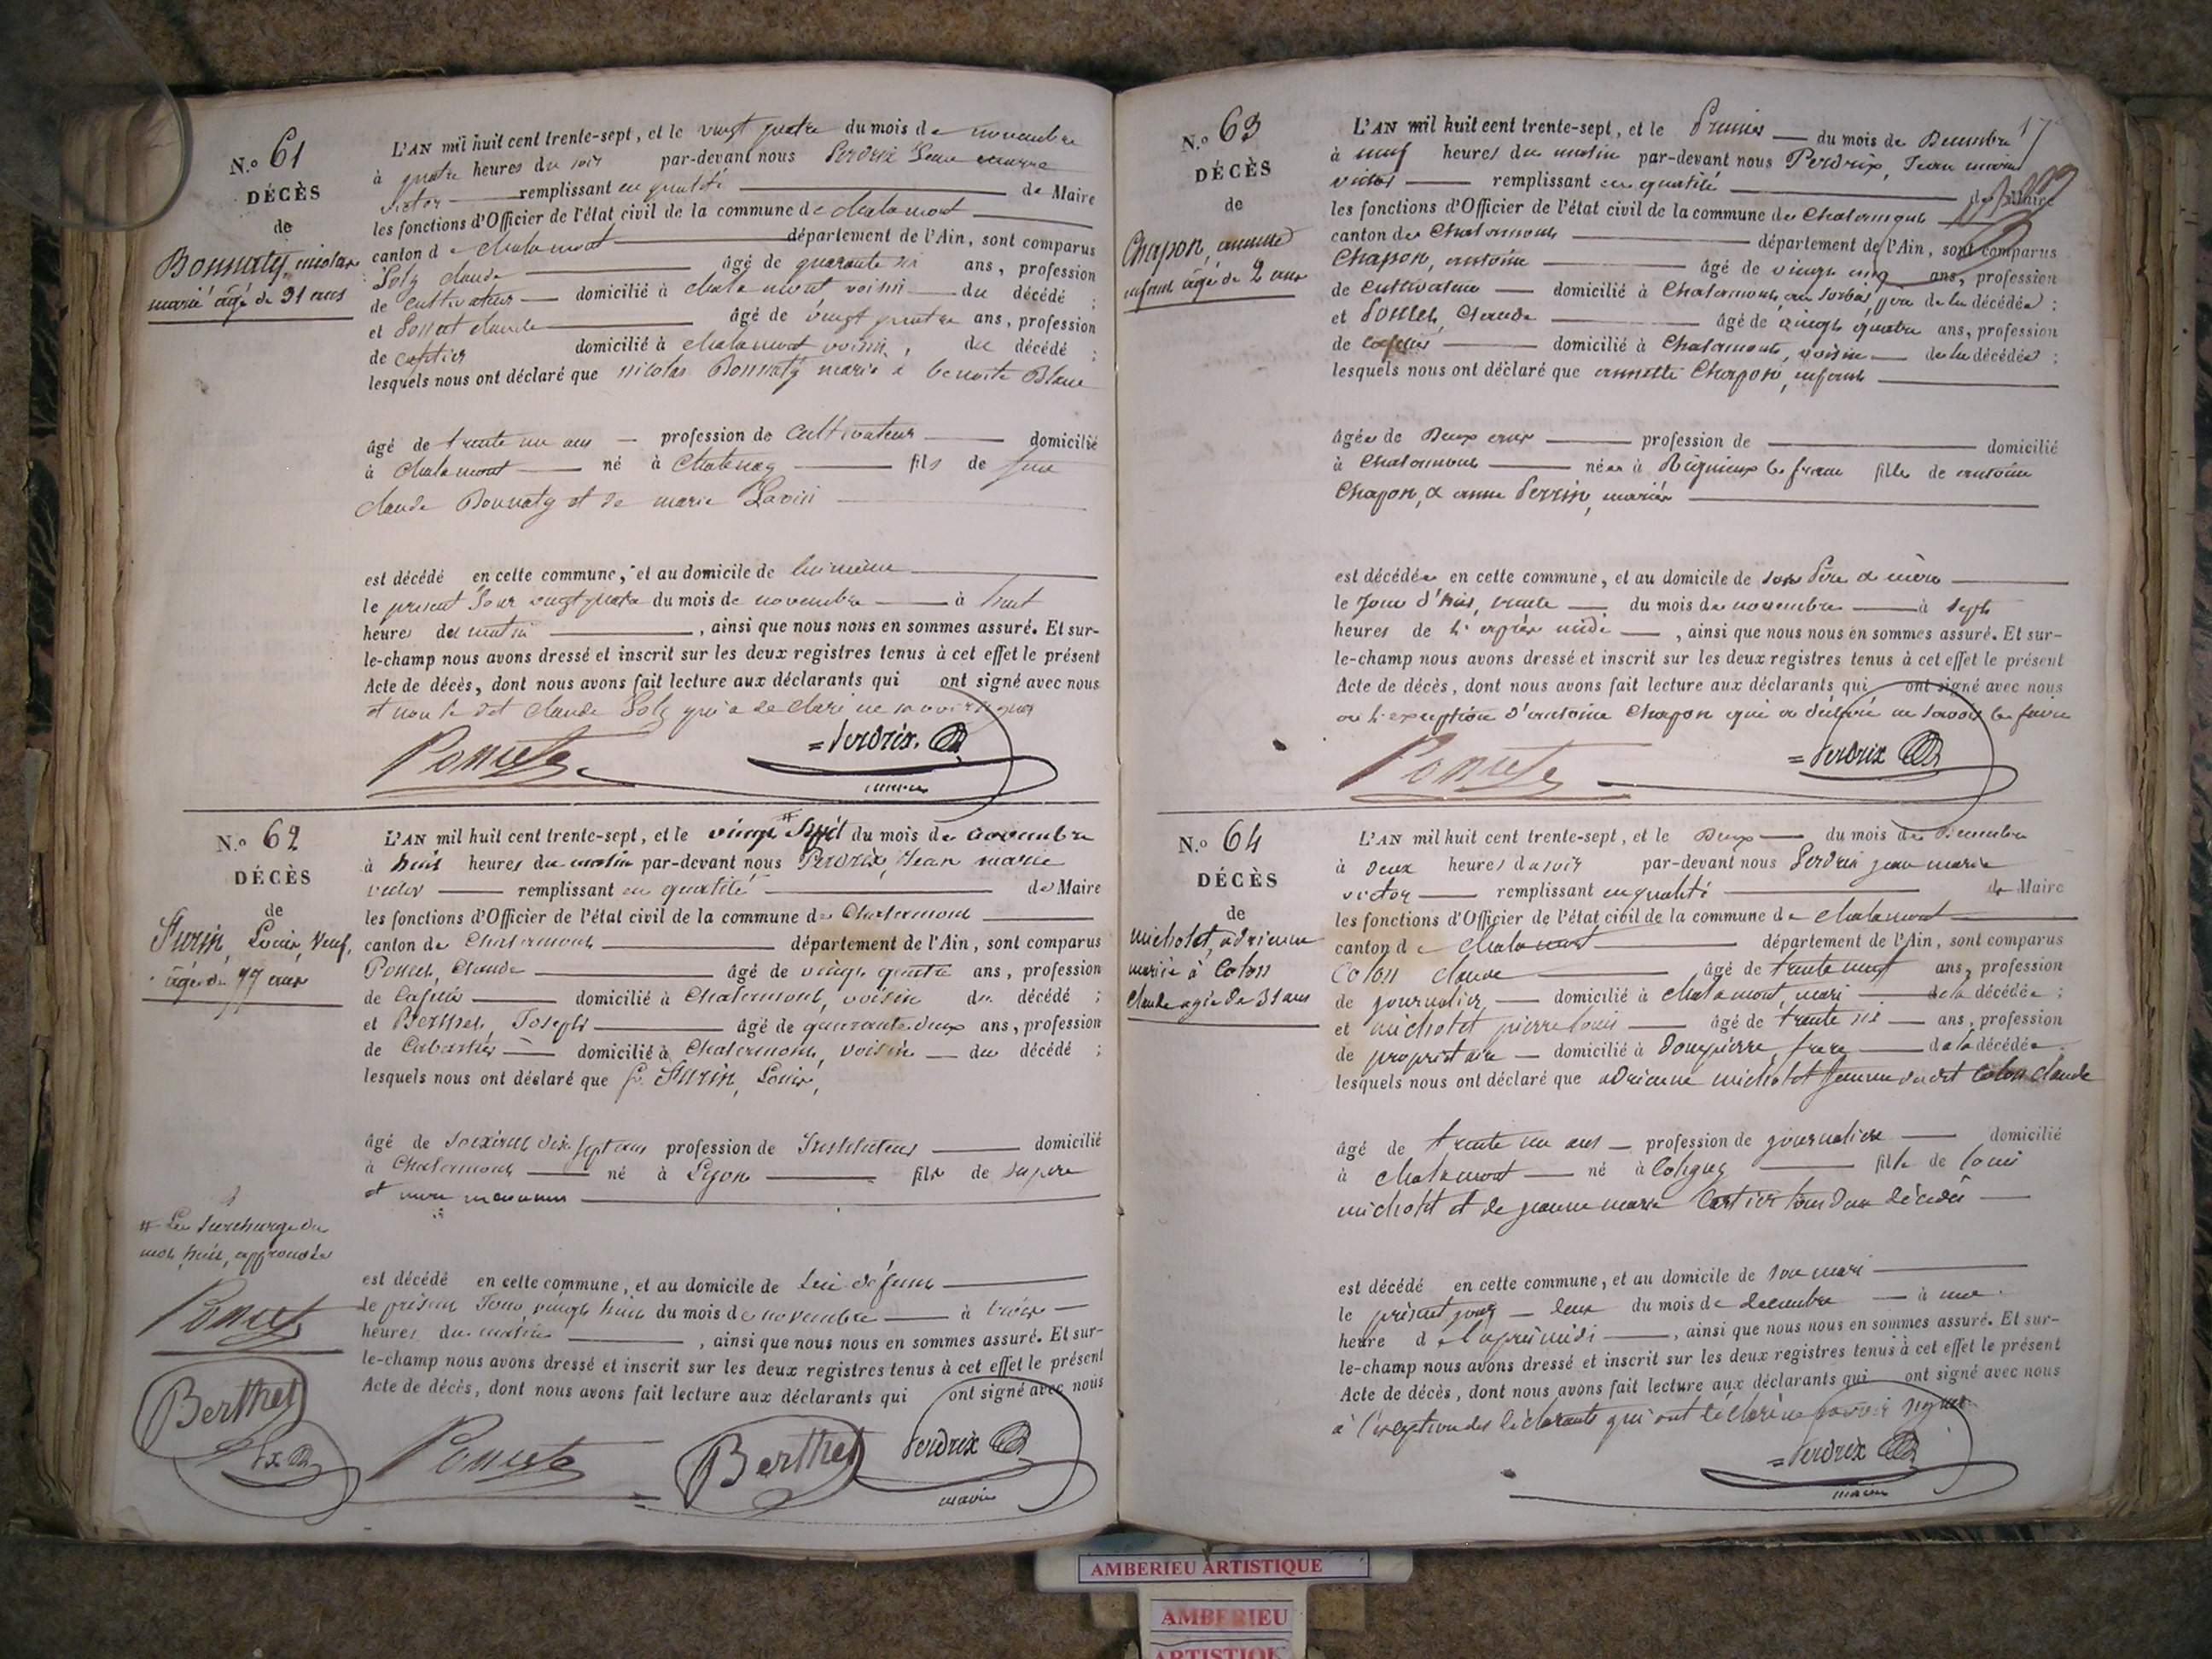 N.o 61
DÉCÈS
de
Bonnaty, nicolas
marié âgé de 31 ans
L'AN mil huit cent trente-sept, et le vingt quatre du mois de novembre
à quatre heures du soir par-devant nous Perdrix Jean marie
victor remplissant en qualité de Maire
les fonctions d'Officier de l'état civil de la commune de chalamont
canton de chalamont département de l'Ain, sont comparus
claude âgé de quarante six ans, profession
de cultivateur domicilié à chalamont voisin du décédé ;
et Poncet claude âgé de vingt quatre ans, profession
de domicilié à chalamont voisin, du décédé ;
lesquels nous ont déclaré que nicolas Bonnaty marié à benoite Blanc
âgé de trente un ans profession de cultivateur domicilié
à chalamont né à Chatenay fils de feu
claude Bonnaty et de marie
est décédé en cette commune, et au domicile de lui même
le présent Jour vingt quatre du mois de novembre à huit
heures du matin , ainsi que nous nous en sommes assuré. Et sur-
le-champ nous avons dressé et inscrit sur les deux registres tenus à cet effet le présent
Acte de décès, dont nous avons fait lecture aux déclarants qui ont signé avec nous
et non le dit claude qui a declaré ne savoir signer
Poncet
= Perdrix.
maire
N.o 62
DÉCÈS
de
Furin, Louis, Veuf,
âgé de 77 ans
L'AN mil huit cent trente-sept, et le vingt # huit du mois de novembre
à huit heures du matin par-devant nous Perdrix, Jean marie
victor remplissant en qualité de Maire
les fonctions d'Officier de l'état civil de la commune de Chalamont
canton de Chalamont département de l'Ain, sont comparus
Poncet, Claude âgé de vingt quatre ans, profession
de domicilié à Chalamont, voisin du décédé ;
et Berthet, Joseph âgé de quarante deux ans, profession
de domicilié à Chalamont, voisin du décédé ;
lesquels nous ont déclaré que Furin, Louis,
âgé de soixante dix sept ans profession de Instituteur domicilié
à Chalamont né à Lyon fils de ses père
et mère inconnus
# La surcharge du
mot huit, approuvée
Poncet
Berthet
est décédé en cette commune, et au domicile de lui défunt
le présent Jour vingt huit du mois de novembre à trois
heures du matin , ainsi que nous nous en sommes assuré. Et sur-
le-champ nous avons dressé et inscrit sur les deux registres tenus à cet effet le présent
Acte de décès, dont nous avons fait lecture aux déclarants qui ont signé avec nous
Poncet
Berthet
Perdrix
maire
17
N.o 63
DÉCÈS
de
Chapon, annette
enfant âgée de 2 ans
L'AN mil huit cent trente-sept, et le Premier du mois de Decembre
à neuf heures du matin par-devant nous Perdrix, Jean marie
victor remplissant en qualité de Maire
les fonctions d'Officier de l'état civil de la commune de Chalamont
canton de Chalamont département de l'Ain, sont comparus
Chapon, antoine âgé de vingt cinq ans, profession
de cultivateur domicilié à Chalamont, père de la décédée ;
et Poncet, Claude âgé de vingt quatre ans, profession
de domicilié à Chalamont, voisin de la décédée ;
lesquels nous ont déclaré que annette Chapon, enfant
âgée de Deux ans profession de domicilié
à Chalamont née à Rignieux le franc fille de antoine
Chapon, & anne Perrin, mariés
est décédée en cette commune, et au domicile de son Père & mère
le Jour d'hier, trente du mois de novembre à sept
heures de l'après midi , ainsi que nous nous en sommes assuré. Et sur-
le-champ nous avons dressé et inscrit sur les deux registres tenus à cet effet le présent
Acte de décès, dont nous avons fait lecture aux déclarants qui ont signé avec nous
à l'exception d'antoine Chapon qui a déclaré ne savoir le faire
Poncet
= Perdrix
N.o 64
DÉCÈS
de
micholet, adrienne
mariée à Colon
Claude agée de 31 ans
L'AN mil huit cent trente-sept, et le Deux du mois de Decembre
à deux heures du soir par-devant nous Perdrix jean marie
victor remplissant en qualité de Maire
les fonctions d'Officier de l'état civil de la commune de chalamont
canton de chalamont département de l'Ain, sont comparus
Colon claude âgé de trente neuf ans, profession
de journalier domicilié à chalamont, mari de la décédée ;
et micholet pierre louis âgé de trente six ans, profession
de propriétaire domicilié à Dompierre, frere de la décédée
lesquels nous ont déclaré que adrienne micholet femme dudit Colon claude
âgé de trente un ans profession de journaliere domicilié
à chalamont né à Coligny fille de louis
micholet et de jeanne marie Cartier tous deux décédés
est décédé en cette commune, et au domicile de son mari
le présent jour deux du mois de decembre à une
heure d l'après midi , ainsi que nous nous en sommes assuré. Et sur-
le-champ nous avons dressé et inscrit sur les deux registres tenus à cet effet le présent
Acte de décès, dont nous avons fait lecture aux déclarants qui ont signé avec nous
à l'exception des déclarants qui ont déclaré ne savoir signer
= Perdrix
maire
AMBERIEU ARTISTIQUE
AMBERIEU
ARTISTIQUE